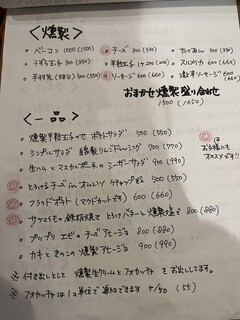 <燻製>
・ベーコン 1000 (1100) ・チーズ 300 (330) ・たくあん 300 (330)
・うずら玉子 300 (330) ・半熟玉子 200 (220) ・スルメイカ 600 (660)
・手羽先 ・ソーセージ 600 (660) ・激辛ソーセージ 600 (660)
おまかせ燻製盛り合わせ
1500 (1650)
<一品>
・燻製半熟玉子のせ ポテトサラダ 500 (550)
・シンプルサラダ 燻製ドレッシング 700 (770)
・生ハムとマスカルポーネのシーザーサラダ 900 (990)
・とろけるチーズinオムレツ ケチャップ 500 (550)
・フライドポテト (マクドカットです) 600 (660)
・サツマイモの鉄板焼き とけるバターと燻製塩で 800 (880)
・プリプリ エビのチーズアヒージョ 800 (880)
・カキときのこの燻製アヒージョ 900 (990)
は
お客様にも
オススメです!!
※ 付き出しとして 燻製生クリームとフォカッチャを お出ししてます。
※ フォカッチャは1コ単位で追加できます ¥50 (55)